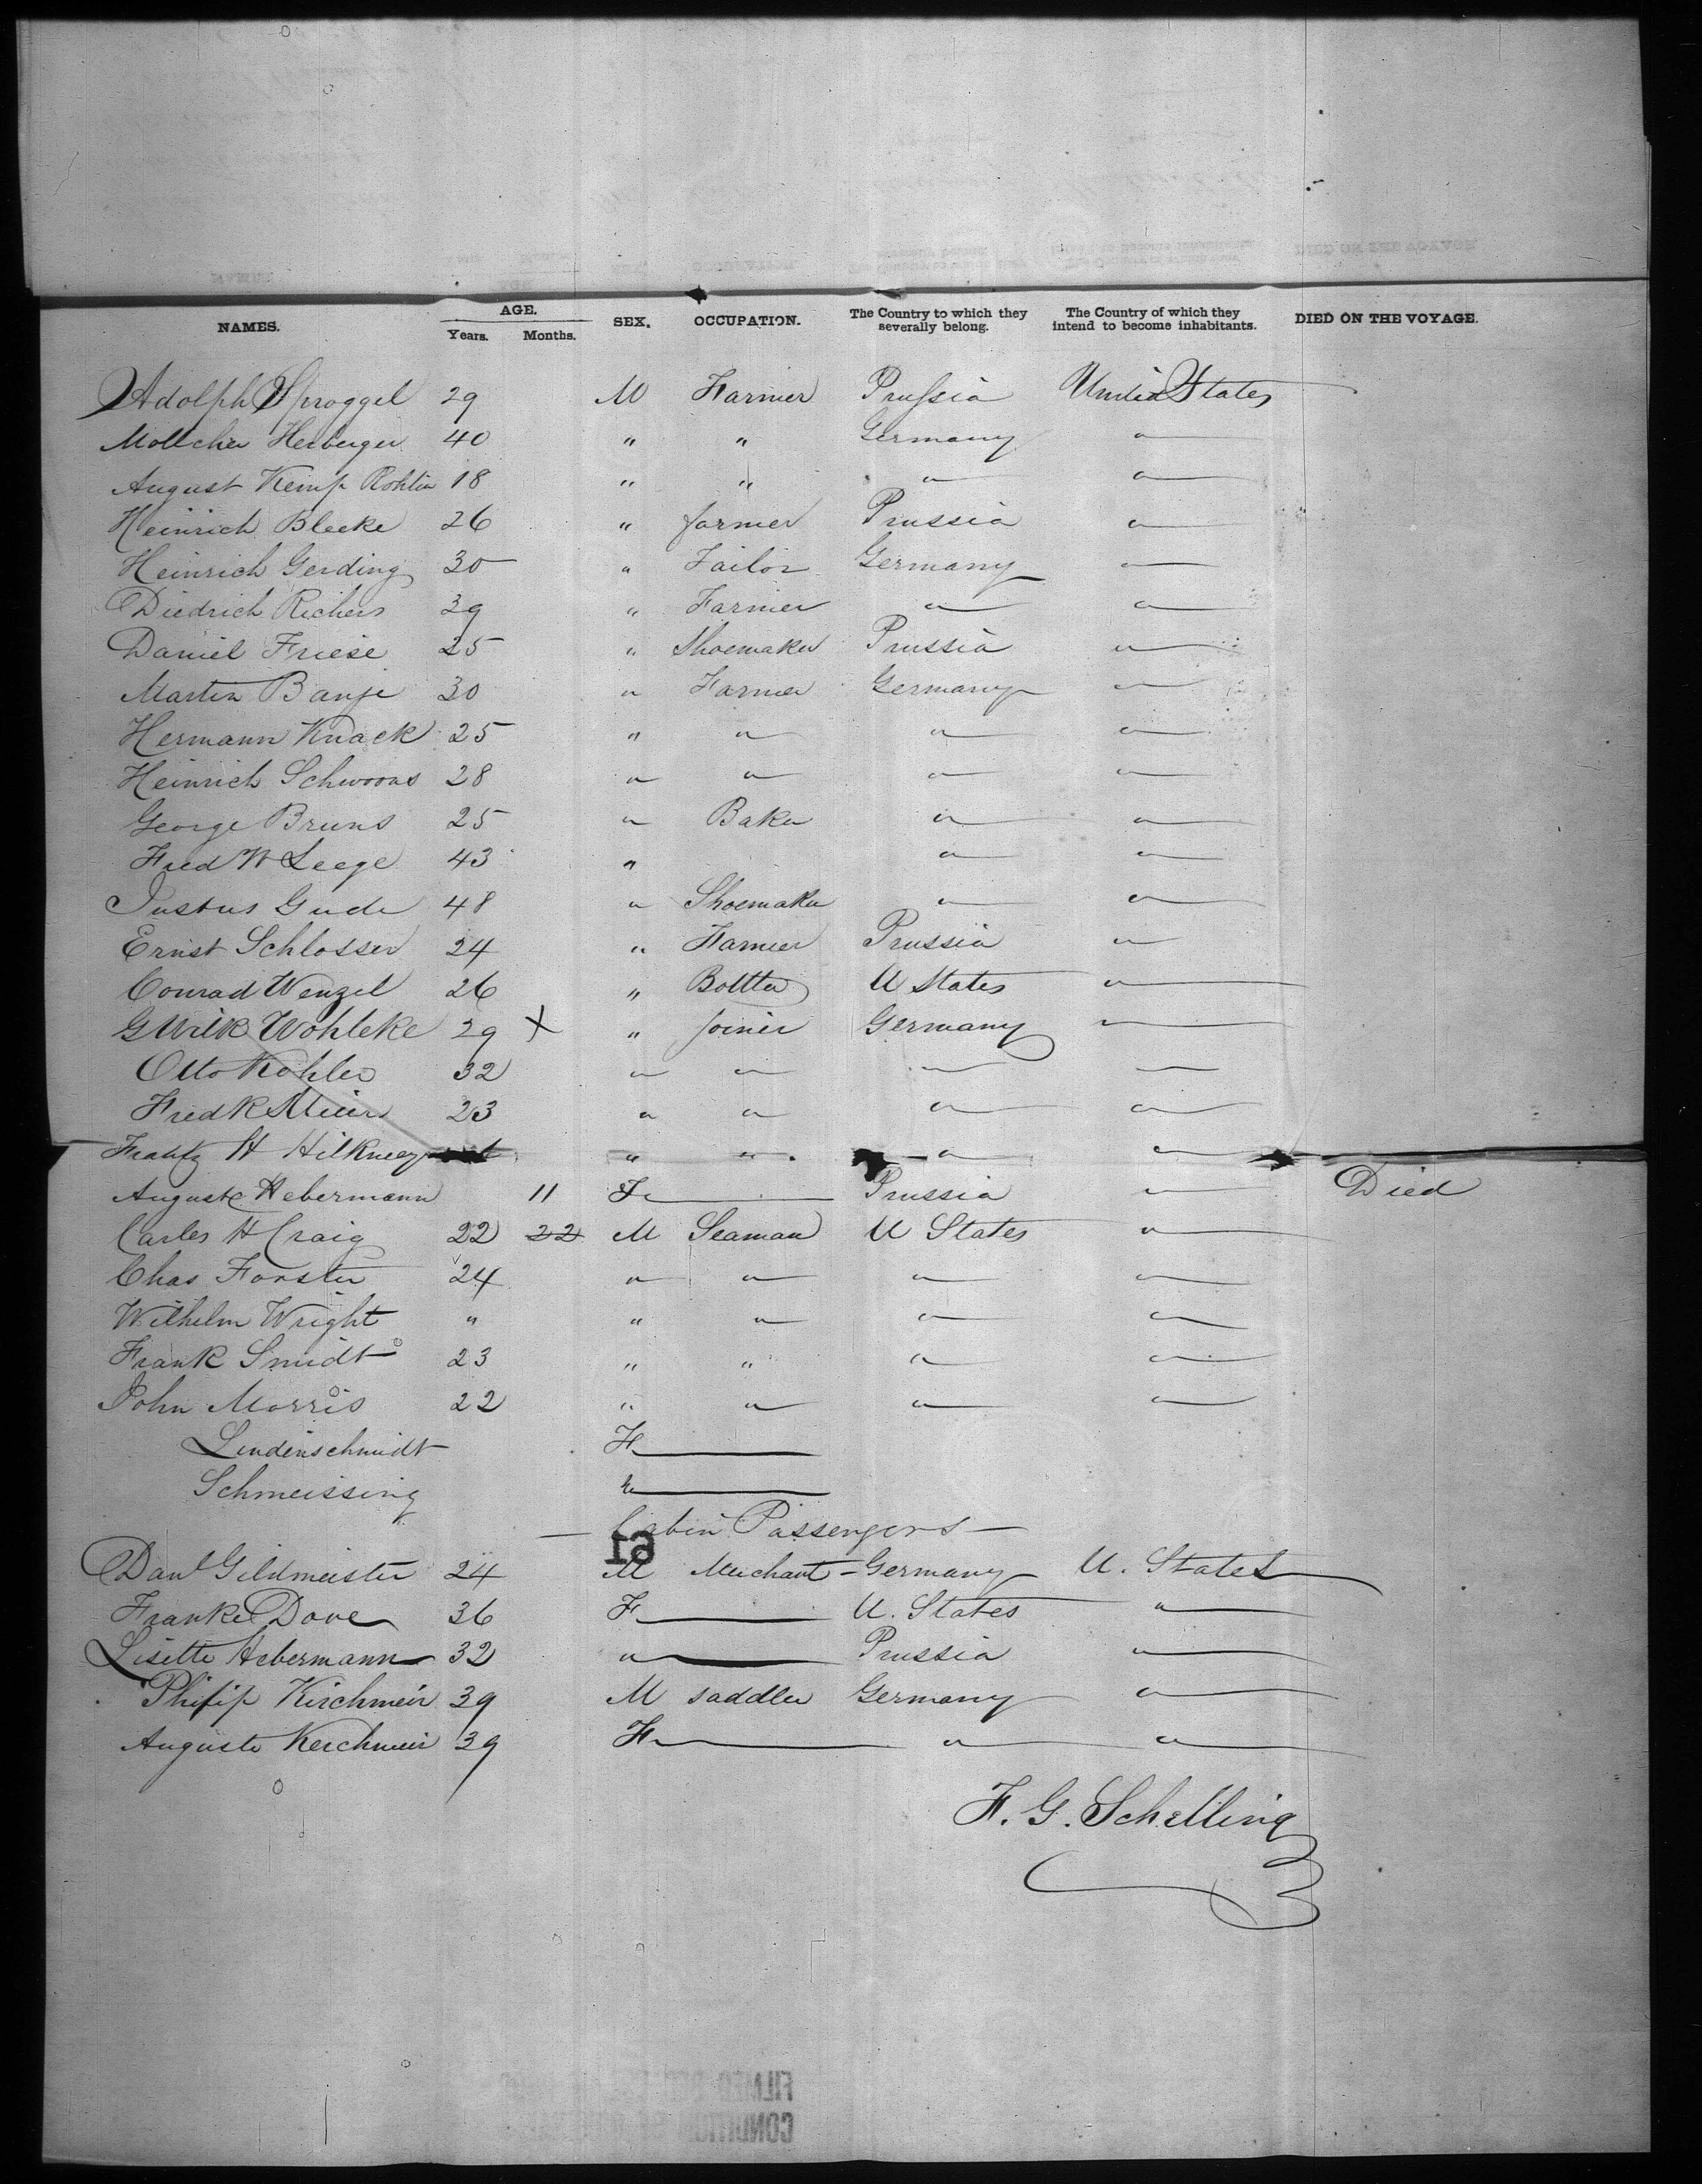 NAMES. AGE. Years. Months. SEX. OCCUPATION. The Country to which they severally belong. The Country of which they intend to become inhabitants. DIED ON THE VOYAGE.
Adolph Sproggel 29 M Farmer Prussia United States
Herberger 40 " " Germany "
August Kemp 18 " " " "
Heinrich Bleeke 26 " farmer Prussia "
Heinrich Gerding 30 " Tailor Germany "
Diedrich Richers 39 " Farmer " "
Daniel Friese 25 " Shoemaker Prussia "
Martin Banje 30 " Farmer Germany "
Hermann Knack 25 " " " "
Heinrich 28 " " " "
George Bruns 25 " Baker " "
Fred W Leege 43 " " "
Justus Gude 48 " Shoemaker " "
Ernst Schlosser 24 " Farmer Prussia "
Conrad Wenzel 26 " U States "
G Wilk Wohleke 29 X " joiner Germany "
Otto Kohler 32 " " " "
Fredk 23 " " " "
H " " " "
Auguste Hebermann 11 F Prussia " Died
Carles H Craig 22 22 M Seaman U States "
Chas Forster 24 " " " "
Wilhelm Wright " " " " "
Frank Smidt 23 " " " "
John Morris 22 " " " "
Lindenschmidt F
Schmeissing "
— Cabin Passengers —
19
Danl Gildmeister 24 M Merchant Germany U. States
Franke Dove 36 F U. States "
Lisette Hebermann 32 " Prussia "
Philip Kirchmeir 39 M saddler Germany "
Auguste Kerchmeir 39 F " "
F. G. Schelling
FILMED
CONDITION